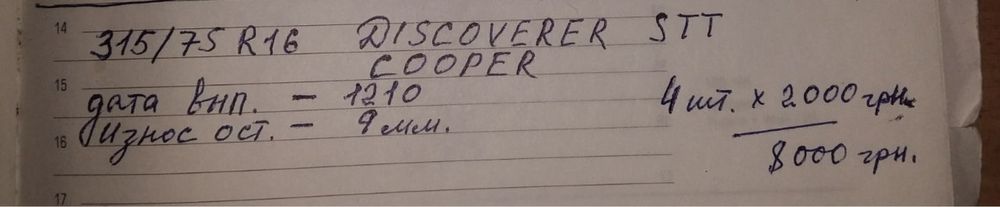 14
315/75 R16 DISCOVERER STT
COOPER
15
дата вып. - 1210
4 шт. х 2000 грн.
Износ ост. - 9 мм.
16
8000 грн.
17